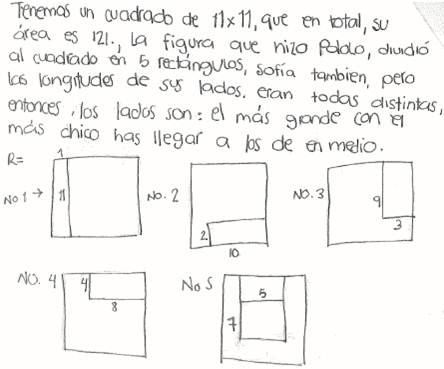 Tenemos un cuadrado de 11x11, que en total, su
área es 121., La figura que hizo Pololo, dividió
al cuadrado en 5 rectángulos, sofía tambien, pero
las longitudes de sus lados, eran todas distintas,
entonces, los lados son: el más grande con el
más chico has llegar a los de en medio.
R=
1
No 1 → 11
NO. 2
2
10
NO. 3
9
3
NO. 4
4
8
No 5
5
7